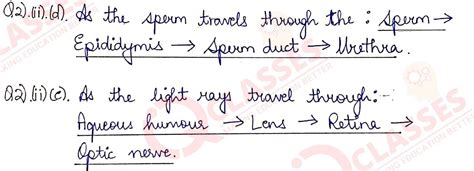 Q2).(ii).(d). As the sperm travels through the : Sperm→
Epididymis → Sperm duct → Urethra.
Q2).(ii)(e). As the light rays travel through:-
Aqueous humour → Lens → Retina →
Optic nerve.
CLASSES
KING EDUCATION BETTER
CLASSES
MAKING EDUCATION BETTER